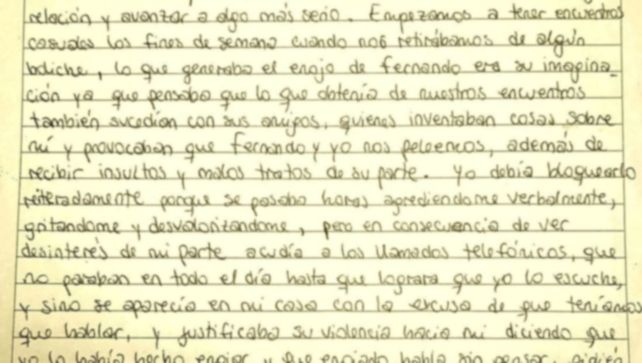 relación y avanzar a algo más serio. Empezamos a tener encuentros
casuales los fines de semana cuando nos retirábamos de algún
boliche, lo que generaba el enojo de Fernando era su imagina_
ción ya que pensaba que lo que obtenía de nuestros encuentros
también sucedían con sus amigos, quienes inventaban cosas sobre
mí y provocaban que Fernando y yo nos peleemos, además de
recibir insultos y malos tratos de su parte. Yo debía bloquearlo
reiteradamente porque se pasaba horas agrediendome verbalmente,
gritandome y desvalorizandome, pero en consecuencia de ver
desinterés de mi parte acudía a los llamados telefónicos, que
no paraban en todo el día hasta que lograra que yo lo escuche,
y sino se aparecía en mi casa con la excusa de que teníamos
que hablar, y justificaba su violencia hacia mí diciendo que
yo lo había hecho enojar y que enojado habla sin pensar,